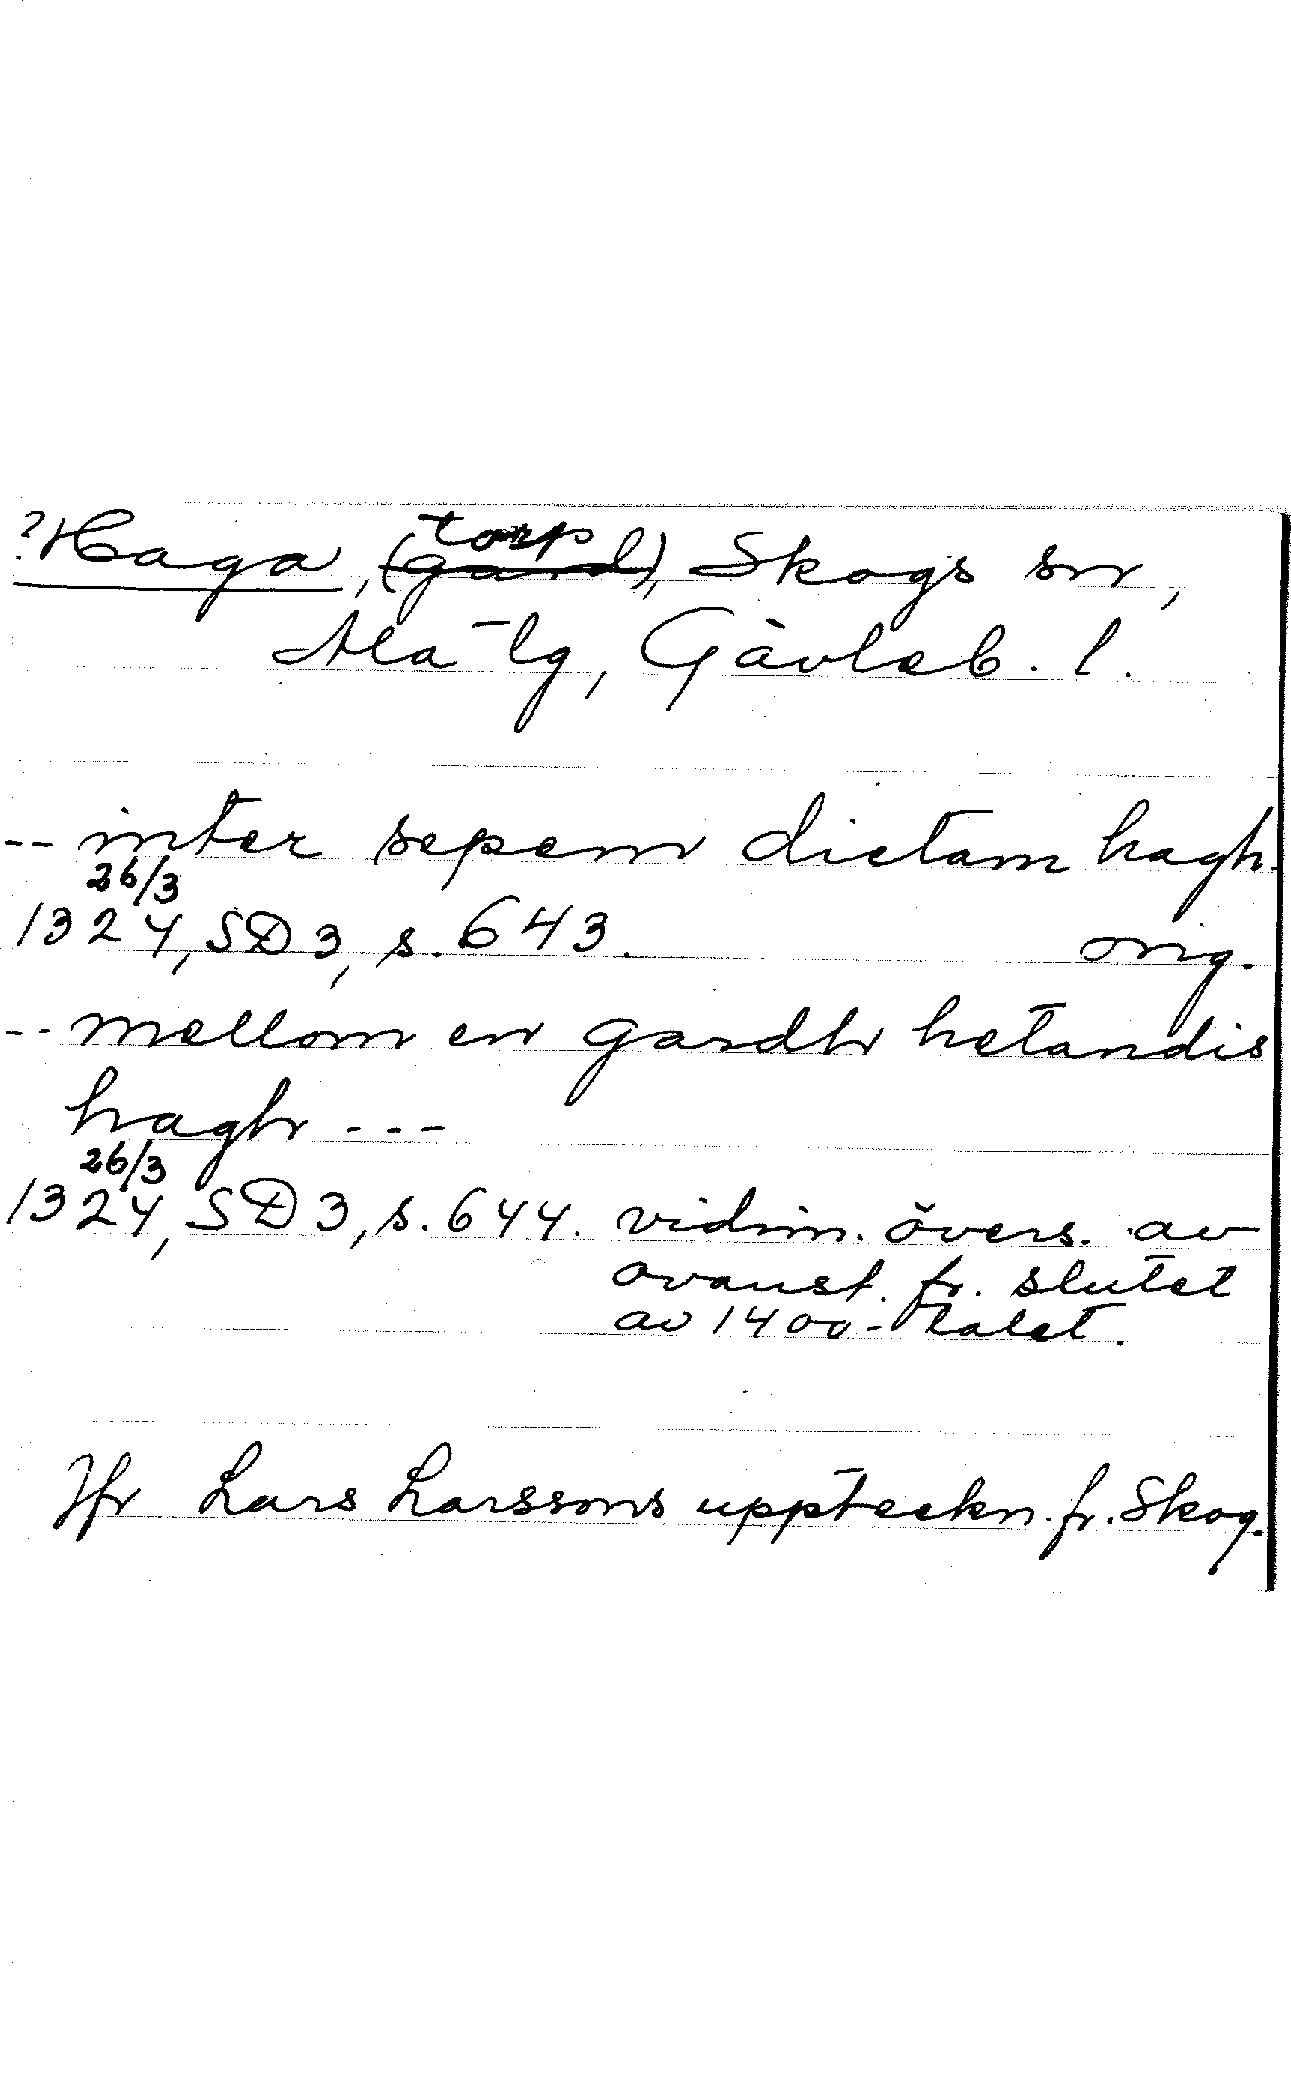 ?Haga, (gård) torp, Skogs sn,
Ala tg, Gävleb. l.
-- inter sepem dictam hagh.
26/3
1324, SD 3, s. 643. orig.
-- mellom en gardh hetandis
hagh ---
26/3
1324, SD 3, s. 644. vidim. övers. av
ovanst. fr. slutet
av 1400-talet.
Jfr Lars Larssons uppteckn. fr. Skog.